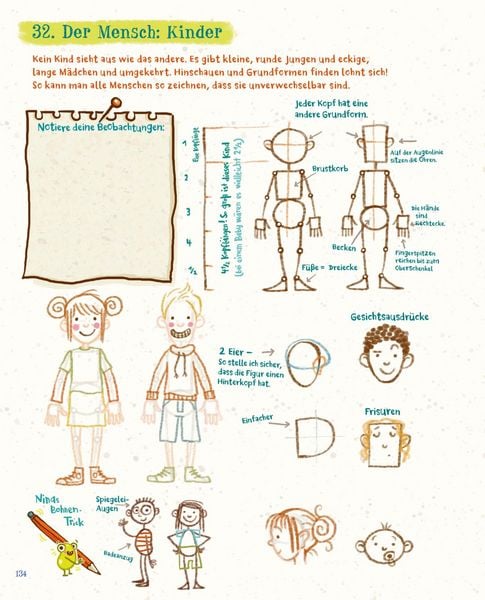 32. Der Mensch: Kinder
Kein Kind sieht aus wie das andere. Es gibt kleine, runde Jungen und eckige,
lange Mädchen und umgekehrt. Hinschauen und Grundformen finden lohnt sich!
So kann man alle Menschen so zeichnen, dass sie unverwechselbar sind.
Notiere deine Beobachtungen:
Jeder Kopf hat eine
andere Grundform.
1
2
3
4
4 1/2
4 1/2 Kopflängen! So groß ist dieses Kind
(bei einem Baby wären es vielleicht 2 1/2)
Auf der Augenlinie
sitzen die Ohren.
Brustkorb
Die Hände
sind
Rechtecke.
Becken
Fingerspitzen
reichen bis zum
Oberschenkel
Füße = Dreiecke
Gesichtsausdrücke
2 Eier –
So stelle ich sicher,
dass die Figur einen
Hinterkopf hat.
Einfacher
Frisuren
Ninas
Bohnen-
Trick
Spiegelei-
Augen
Badeanzug
134